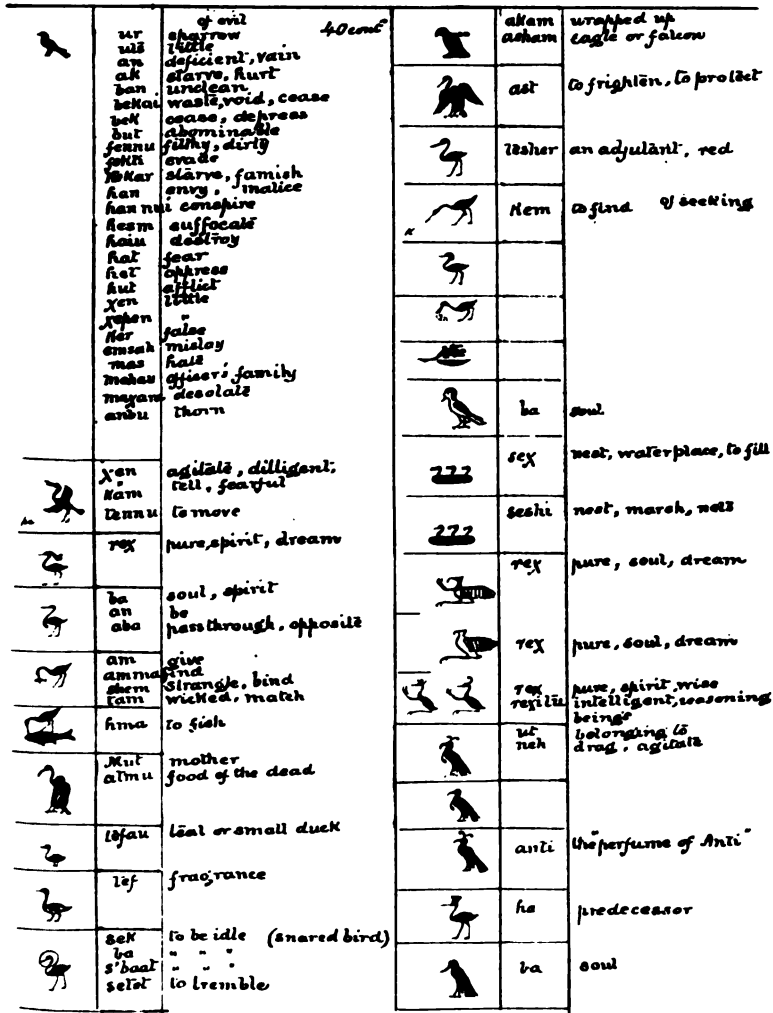 of evil
40 cont
ur sparrow
uts little
an deficient, vain
ak starve, hurt
ban unclean
bekai waste, void, cease
bek cease, depress
but abominable
fennu filthy, dirty
evade
starve, famish
han envy, malice
han nui conspire
hesm suffocate
haiu destroy
hat fear
het oppress
hut afflict
χen little
χepen "
ker false
emsah mislay
mas hate
mahau officer's family
meχam desolate
anbu thorn
χen agitate, dilligent,
kam tell, fearful
tennu to move
reχ pure, spirit, dream
ba soul, spirit
an be
aba pass through, opposite
am give
amma find
shem strangle, bind
tam wicked, match
hma to fish
Mut mother
atmu food of the dead
tefau teal or small duck
tef fragrance
sek to be idle (snared bird)
ba " " "
s'baat " " "
setet to tremble
akem wrapped up
asham eagle or falcon
ast to frighten, to protect
tesher an adjutant, red
kem to find of seeking
ba soul
seχ nest, waterplace, to fill
seshi nest, marsh, nets
reχ pure, soul, dream
reχ pure, soul, dream
reχ pure, spirit, wise
reχitu intelligent, reasoning
beings
ut belonging to
neh drag, agitate
anti the "perfume of Anti"
ha predecessor
ba soul